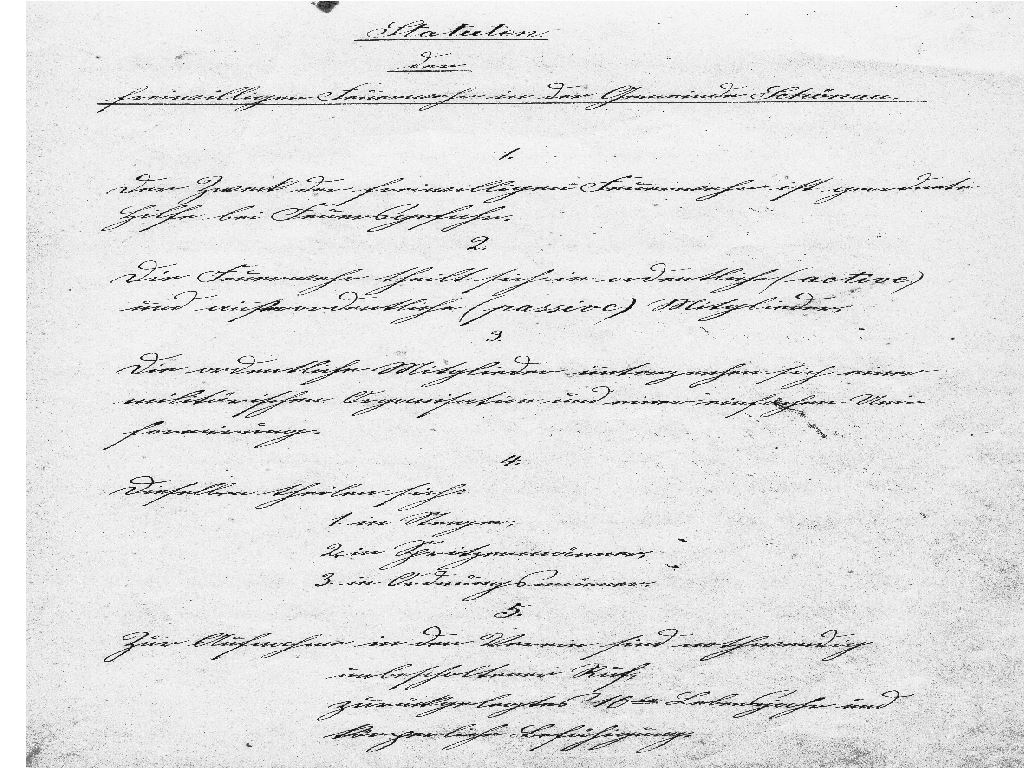 Statuten
der
freiwilligen Feuerwehr in der Gemeinde Schönau.
1.
Der Zweck der freiwilligen Feuerwehr ist geordnete
Hilfe bei Feuersgefahr.
2.
Die Feuerwehr theilt sich in ordentliche (active)
und außerordentliche (passive) Mitglieder.
3.
Die ordentlichen Mitglieder unterziehen sich einer
militärischen Organisation und einer einfachen Uni
formirung.
4.
Dieselben theilen sich:
1. in Steiger,
2. in Spritzenmänner,
3. in Ordnungsmänner.
5.
Zur Aufnahme in den Verein sind nothwendig
unbescholtener Ruf,
zurückgelegtes Lebensjahr und
körperliche Befähigung.